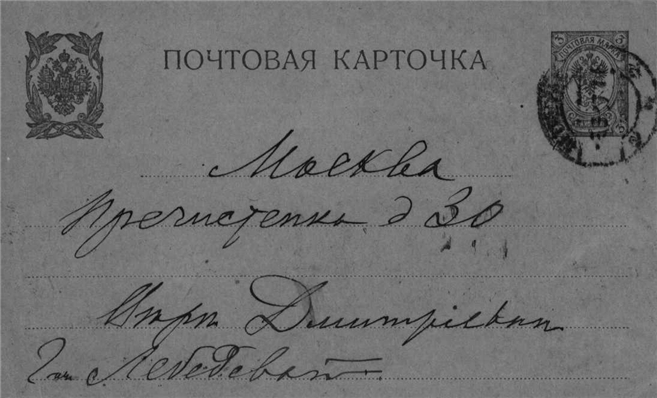 ПОЧТОВАЯ КАРТОЧКА
3 3
ПОЧТОВАЯ МАРКА
Москва
Пречистенка д 30
Дмитріевна
Лебедева